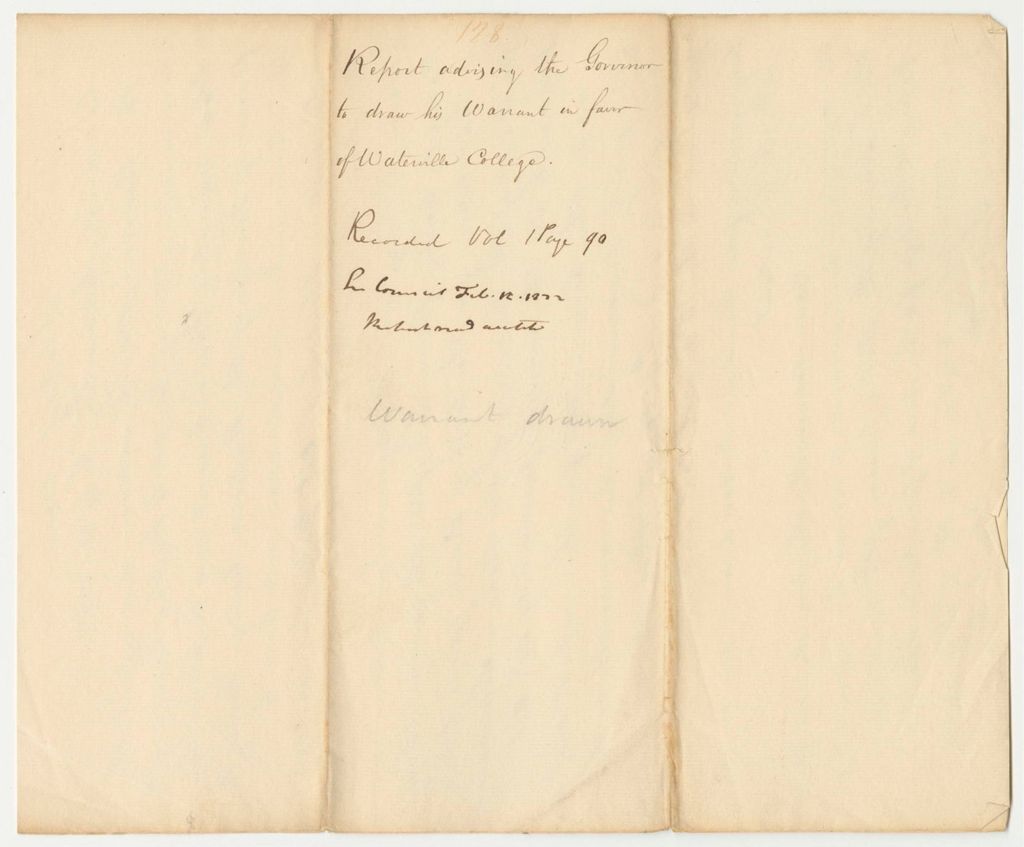 128.
Report advising the Governor
to draw his Warrant in favor
of Waterville College.
Recorded Vol 1 Page 90
In Council Feb. 12. 1822
Read and accepted
Warrant drawn